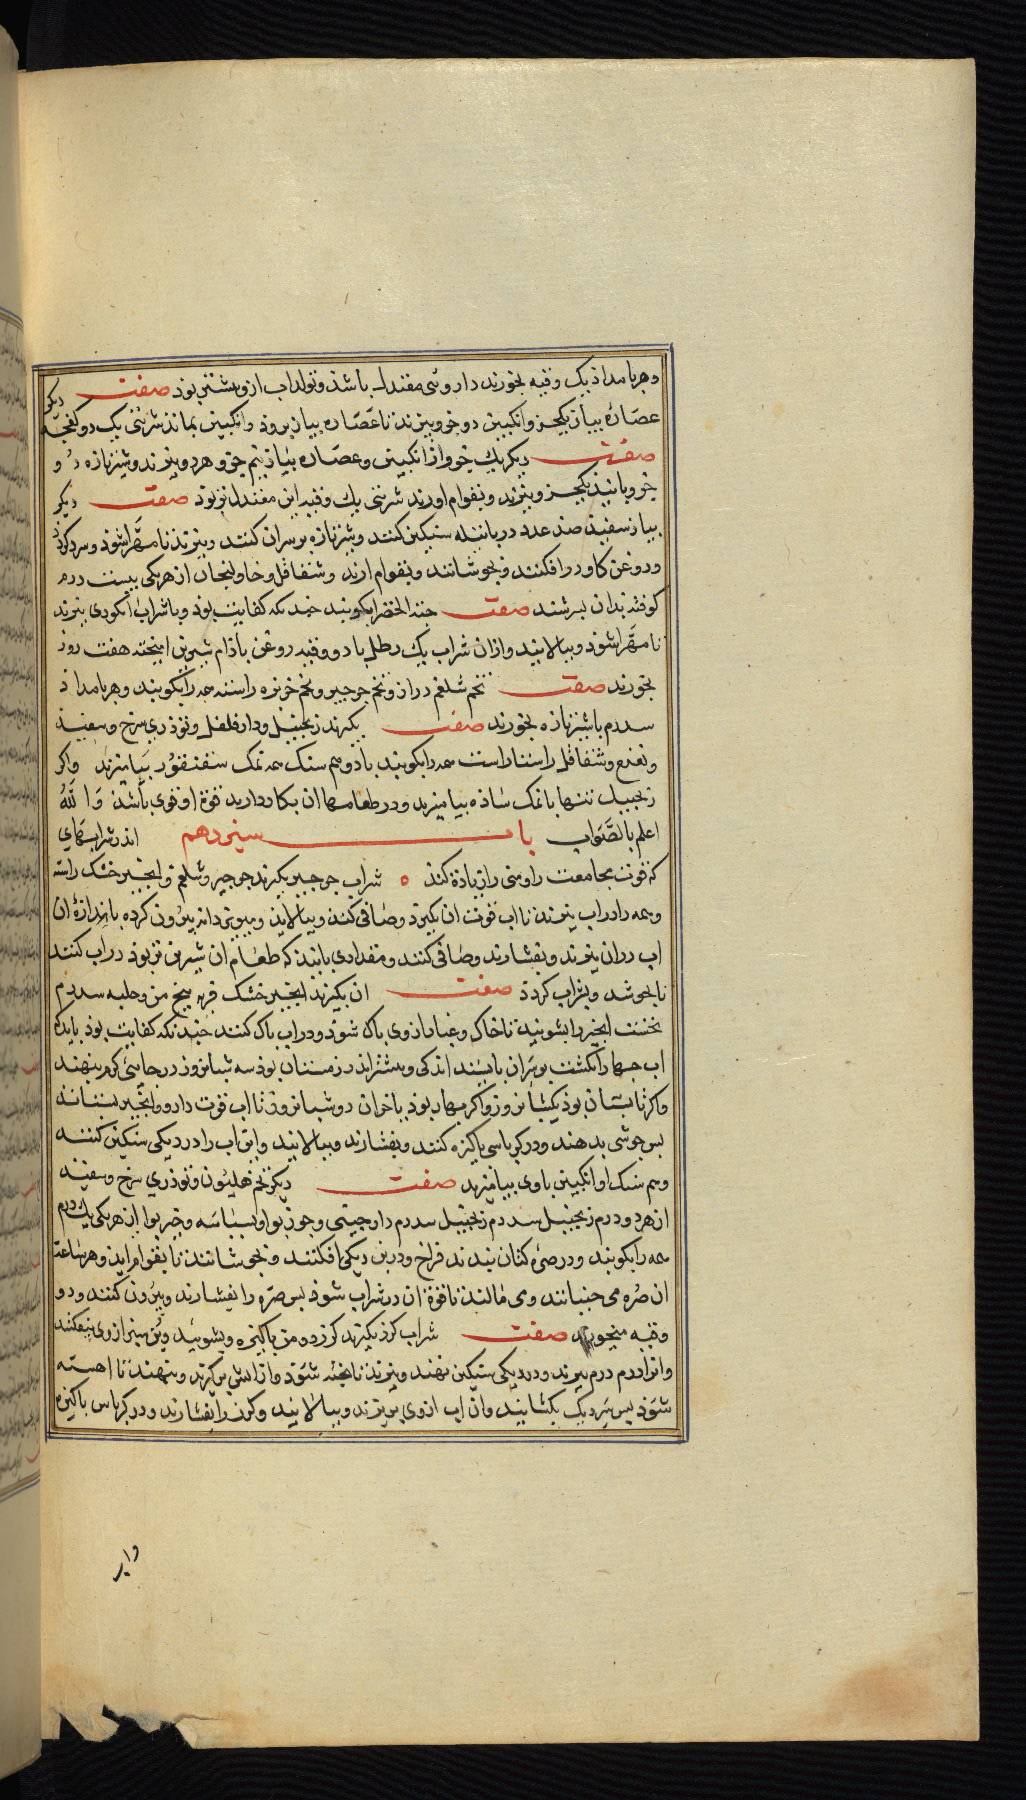 و هر بامداد یک وقیه بخورند داروئی معتدل باشد و تولد اب ازو بیشتر بوذ صفت دیکر
عصارهٔ بیاز یکجز و انکبین دو جزو بپزند تا عصاره بیاز بروذ و انکبین بماند شربتی یک دو کفچه
صفت دیکر یک جزو از انکبین و عصاره بیاز نیم جزو هر دو بپزند و شیر تازه دو
جزو و بانیذ یکجز و بپزند و بقوام اورند شربتی یک وقیه این معتدل تر بوذ صفت دیکر
بیاز سفید صد عدد در باتیله سنکین کنند و شیر تازه بر سران کنند و بپزند تا مهرا شوذ و سرد کردد
و روغن کاو در افکنند و بجوشانند و بقوام ارند و شقاقل و خاولنجان از هر یکی بیست درم
کوفته بدان بسرشند صفت حبة الخضرا بکوبند چندانکه کفایت بوذ و با شراب انکوری بپزند
تا مهرا شوذ و ببالایند و ازان شراب یک رطل با دو وقیه روغن باذام شیرین امیخته هفت روز
بخورند صفت تخم شلغم دراز و تخم جرجیر و تخم خربزه راستاراست همه را بکوبند و هر بامداد
سه درم با شیر تازه بخورند صفت بکیرند زنجبیل و دارفلفل و توذری سرخ و سفید
و نعنع و شقاقل راستاراست همه را بکوبند با دو هم سنک همه نمک سقنقور بیامیزند واکر
زنجبیل تنها با نمک ساذه بیامیزند و در طعامها ان بکار دارند قوة او قوی باشذ والله
اعلم بالصواب باب سیزدهم اندر شرابهای
که قوت مجامعت را و منی را زیاذة کنذ ه شراب جرجیر بکیرند جرجیر و شلغم و انجیر خشک راسته
و همه را در اب بپزند تا اب قوت ان بکیرد و صافی کنند و ببالایند و مویز دانه بیرون کرده باندازهٔ ان
اب دران بپزند و بفشارند و صافی کنند و مقداری بانیذ که طعام ان شیرین تر بوذ در اب کنند
تا بجوشد و شراب کردد صفت ان بکیرند انجیر خشک فربه پنج من و حلبه سه درم
نخست انجیر را بشویند تا خاک و غبار از وی باک شوذ و در اب باک کنند چندانکه کفایت بوذ باید که
اب چهار انکشت بر سران بایستد اندکی و بیشتر اندر زمستان بوذ سه شبانروز در جایی کرم بنهند
و اکر تابستان بوذ یکشبانروز و اکر بهار بوذ یا خزان دو شبانروز تا اب قوت دارو و انجیر بستاند
بس جوشی بدهند و در کرباسی پاکیزه کنند و بفشارند و ببالایند و این اب را در دیکی سنکین کنند
و هم سنک او انکبین با وی بیامیزند صفت دیکر تخم هلیون و توذری سرخ و سفید
از هر دو درم زنجبیل سه درم زنجبیل سه درم دارچینی و جوزبوا و بسباسه و خیربوا از هر یکی یک درم
همه را بکوبند و در صرهٔ کتان بندند فراخ و درین دیکی افکنند و بجوشانند تا بقوام اید و هر ساعت
ان صره می جنبانند و می مالند تا قوة ان در شراب شوذ بس صره را بفشارند و بیرون کنند و دو
وقیه میخورند صفت شراب کزر بکیرند کزر ده من پاکیزه و بشویند و بن سبز از وی بیفکنند
و انرا درم درم ببرند و در دیکی سنکین نهند و بپزند تا پخته شوذ و از اتش برکیرند و بنهند تا اهسته
شوذ بس سر دیک بکشایند و ان اب از وی بریزند و ببالایند و کزر را بفشارند و در کرباس باکیزه
وان